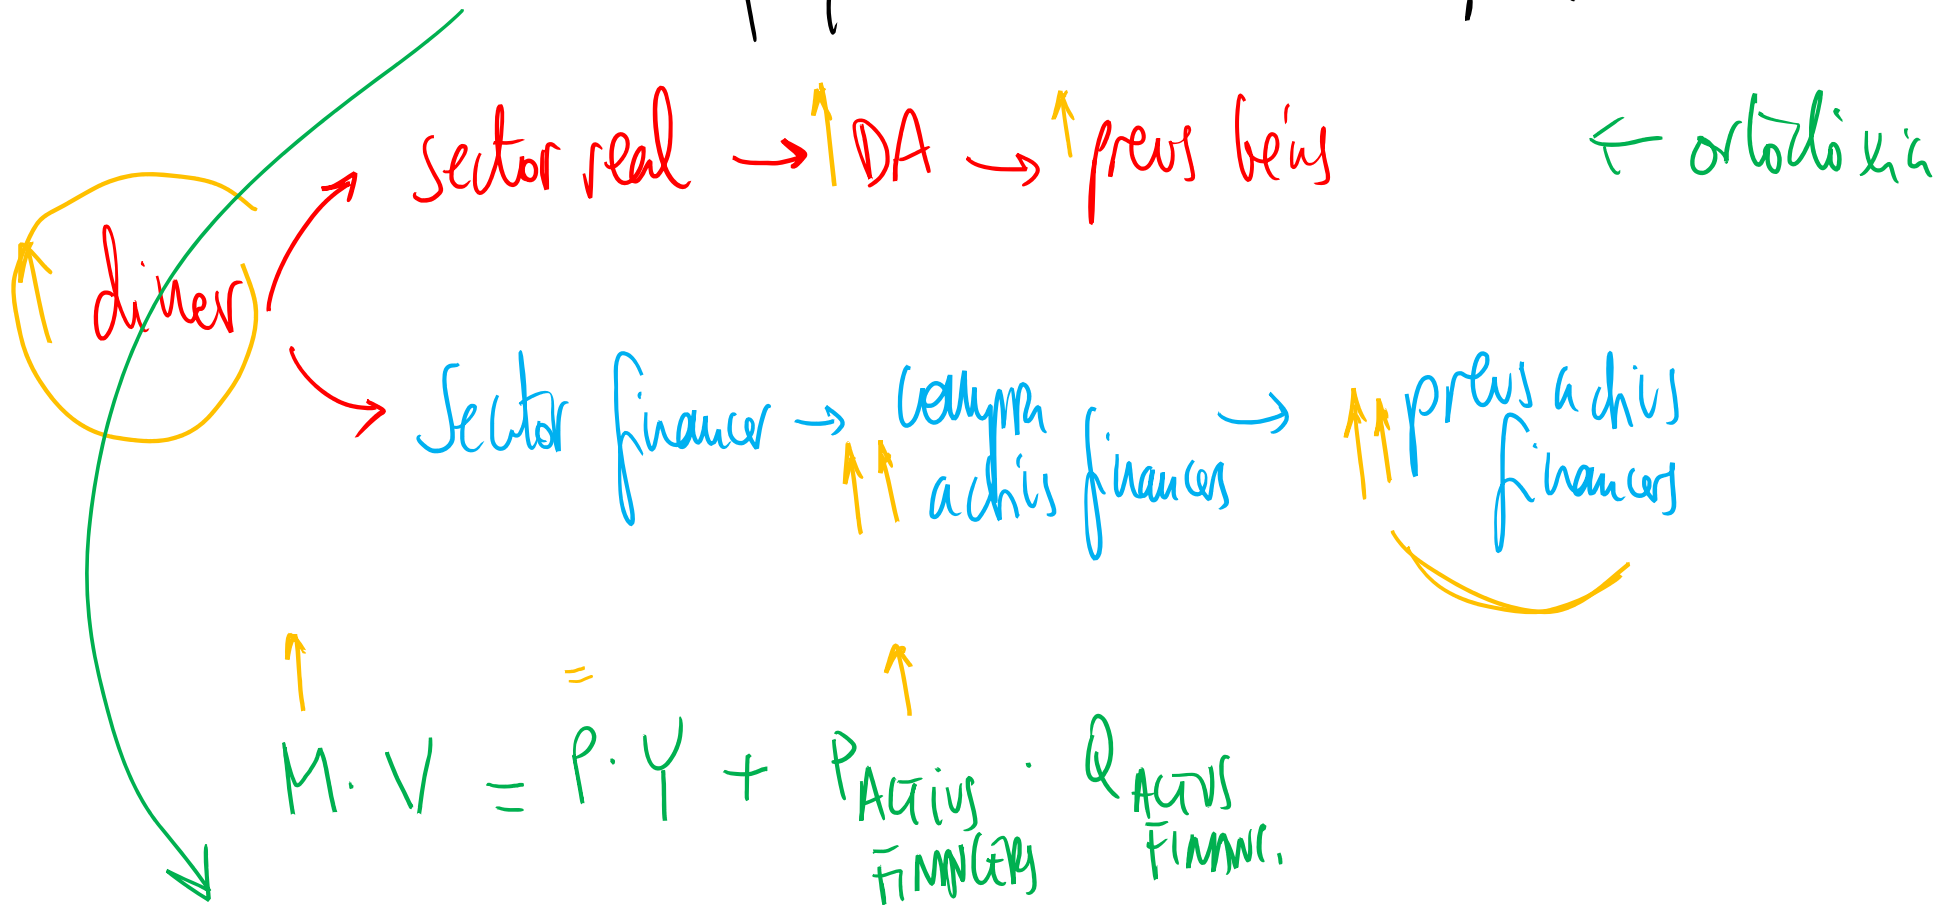 sector real → ↑ DA → ↑ preus béns ← ortodòxia
↑ diner
sector financer → ↑↑ compra actius financers → ↑↑ preus actius financers
↑ = ↑
M · V = P · Y + P ACTIUS FINANCERS · Q ACTIUS FINANC.